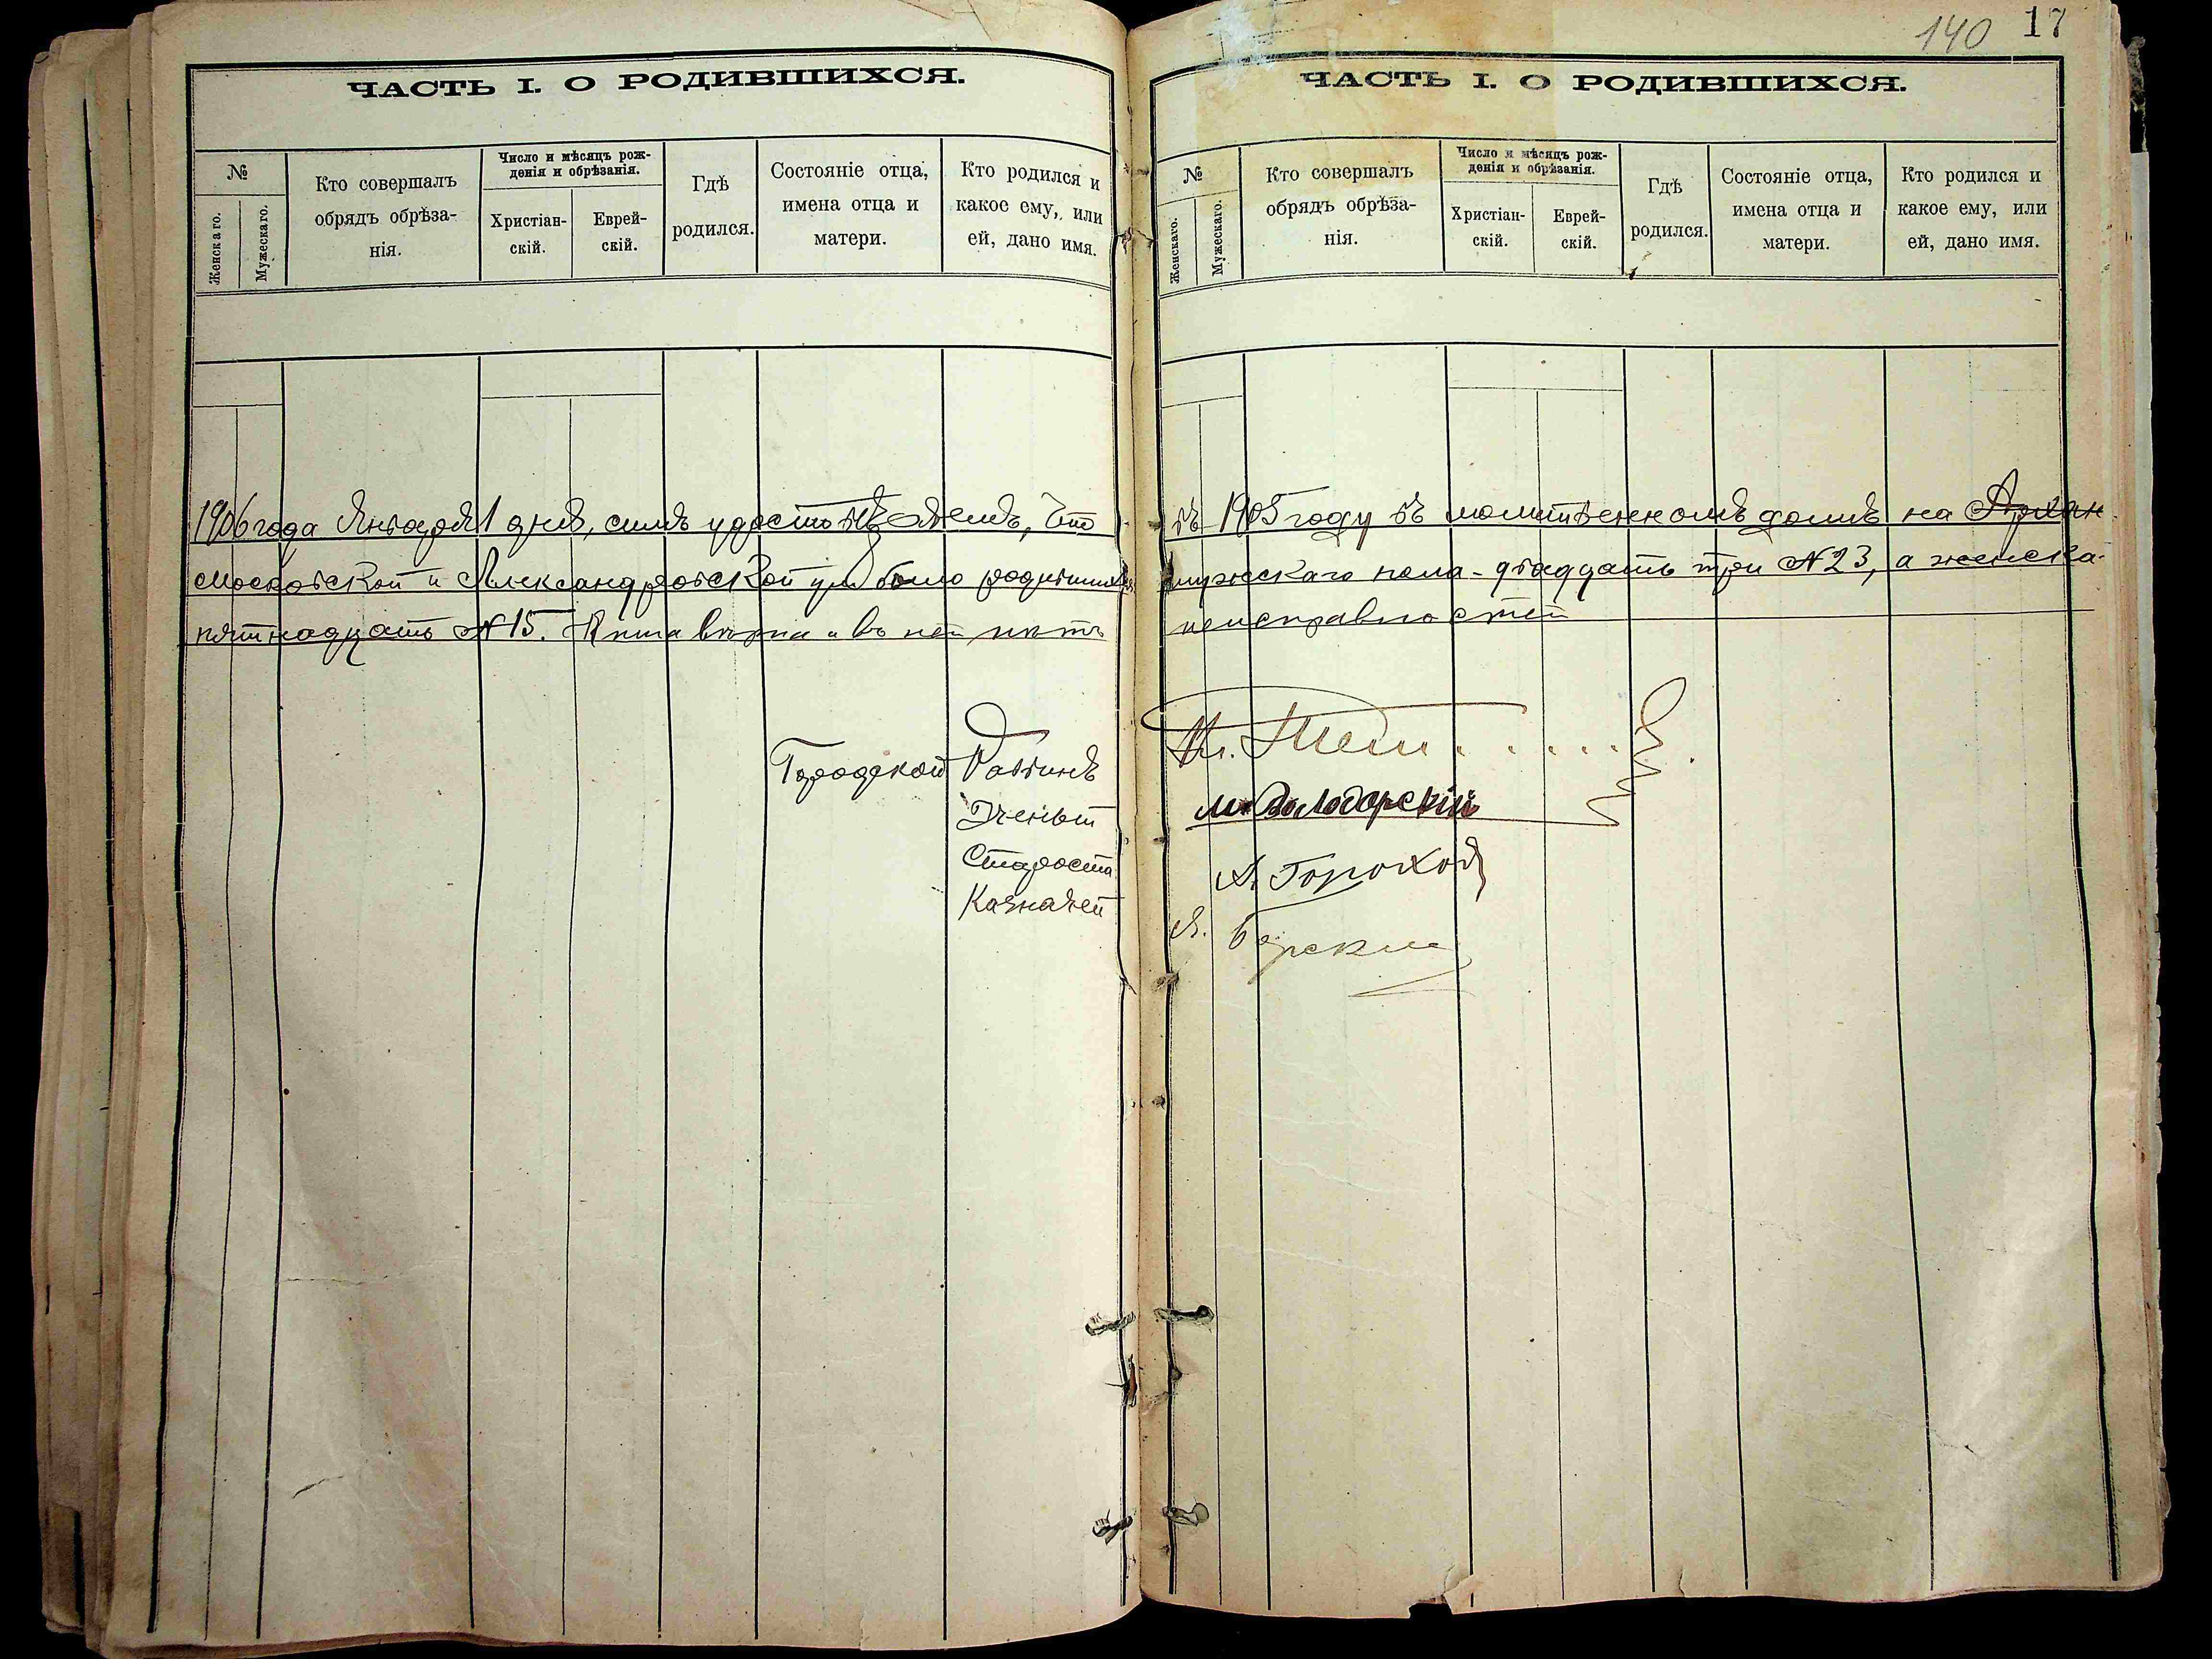 140 17
ЧАСТЬ I. О РОДИВШИХСЯ.
№
Женскаго.
Мужескаго.
Кто совершалъ
обрядъ обрѣза-
нія.
Число и мѣсяцъ рож-
денія и обрѣзанія.
Христіан-
скій.
Еврей-
скій.
Гдѣ
родился.
Состояніе отца,
имена отца и
матери.
Кто родился и
какое ему, или
ей, дано имя.
1906 года Января 1 дня, симъ удостовѣряемъ, что
Московской и Александровской ул. было родившихся
пятнадцать № 15. Книга вѣрна и въ ней нѣтъ
Городской Раввинъ
Ученый
Староста
Казначей
ЧАСТЬ I. О РОДИВШИХСЯ.
№
Женскаго.
Мужескаго.
Кто совершалъ
обрядъ обрѣза-
нія.
Число и мѣсяцъ рож-
денія и обрѣзанія.
Христіан-
скій.
Еврей-
скій.
Гдѣ
родился.
Состояніе отца,
имена отца и
матери.
Кто родился и
какое ему, или
ей, дано имя.
въ 1905 году въ молитвенномъ домѣ на Архан
мужскаго пола - двадцать три № 23, а женска-
неисправностей
А. Горохов